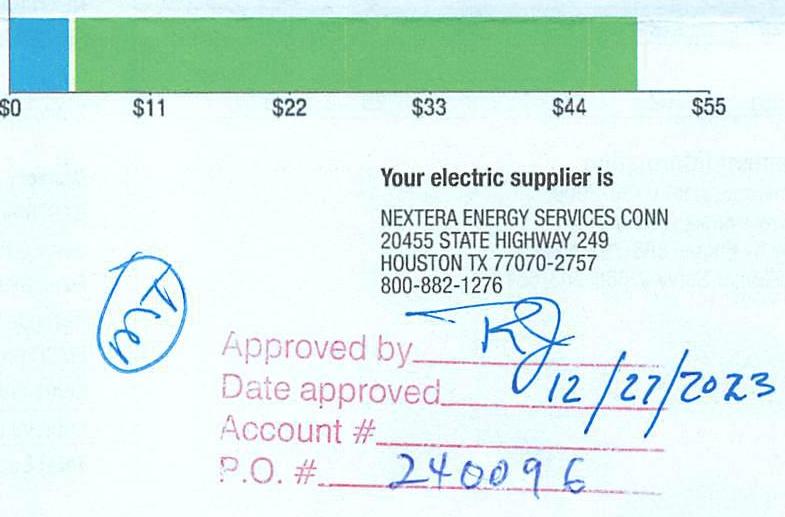 $0 $11 $22 $33 $44 $55
Your electric supplier is
NEXTERA ENERGY SERVICES CONN
20455 STATE HIGHWAY 249
HOUSTON TX 77070-2757
800-882-1276
Approved by RJ
Date approved 12/27/2023
Account #
P.O. # 240096